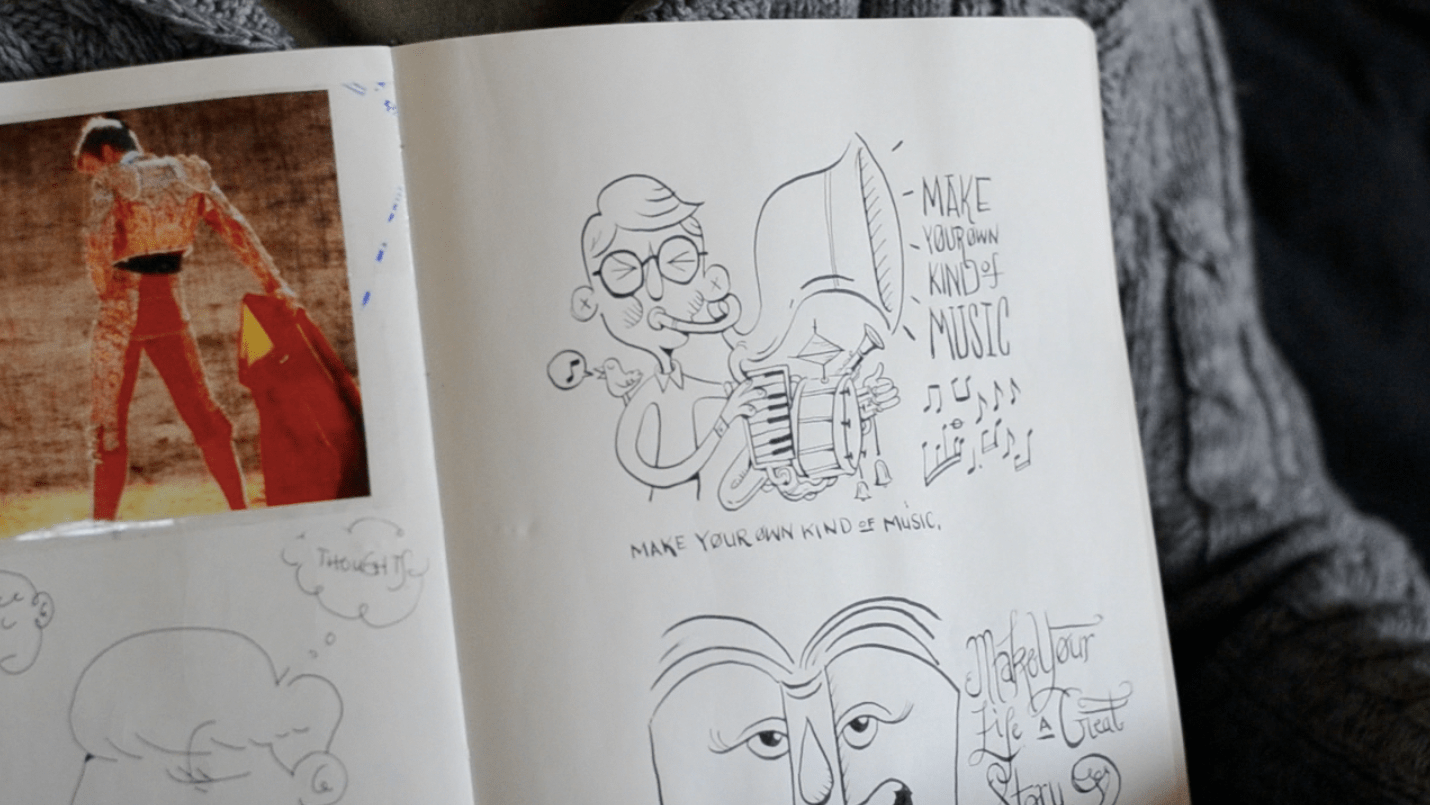 THOUGHTS
MAKE
YOUR OWN
KIND of
MUSIC
MAKE YOUR OWN KIND OF MUSIC.
Make Your
Life A Great
Story